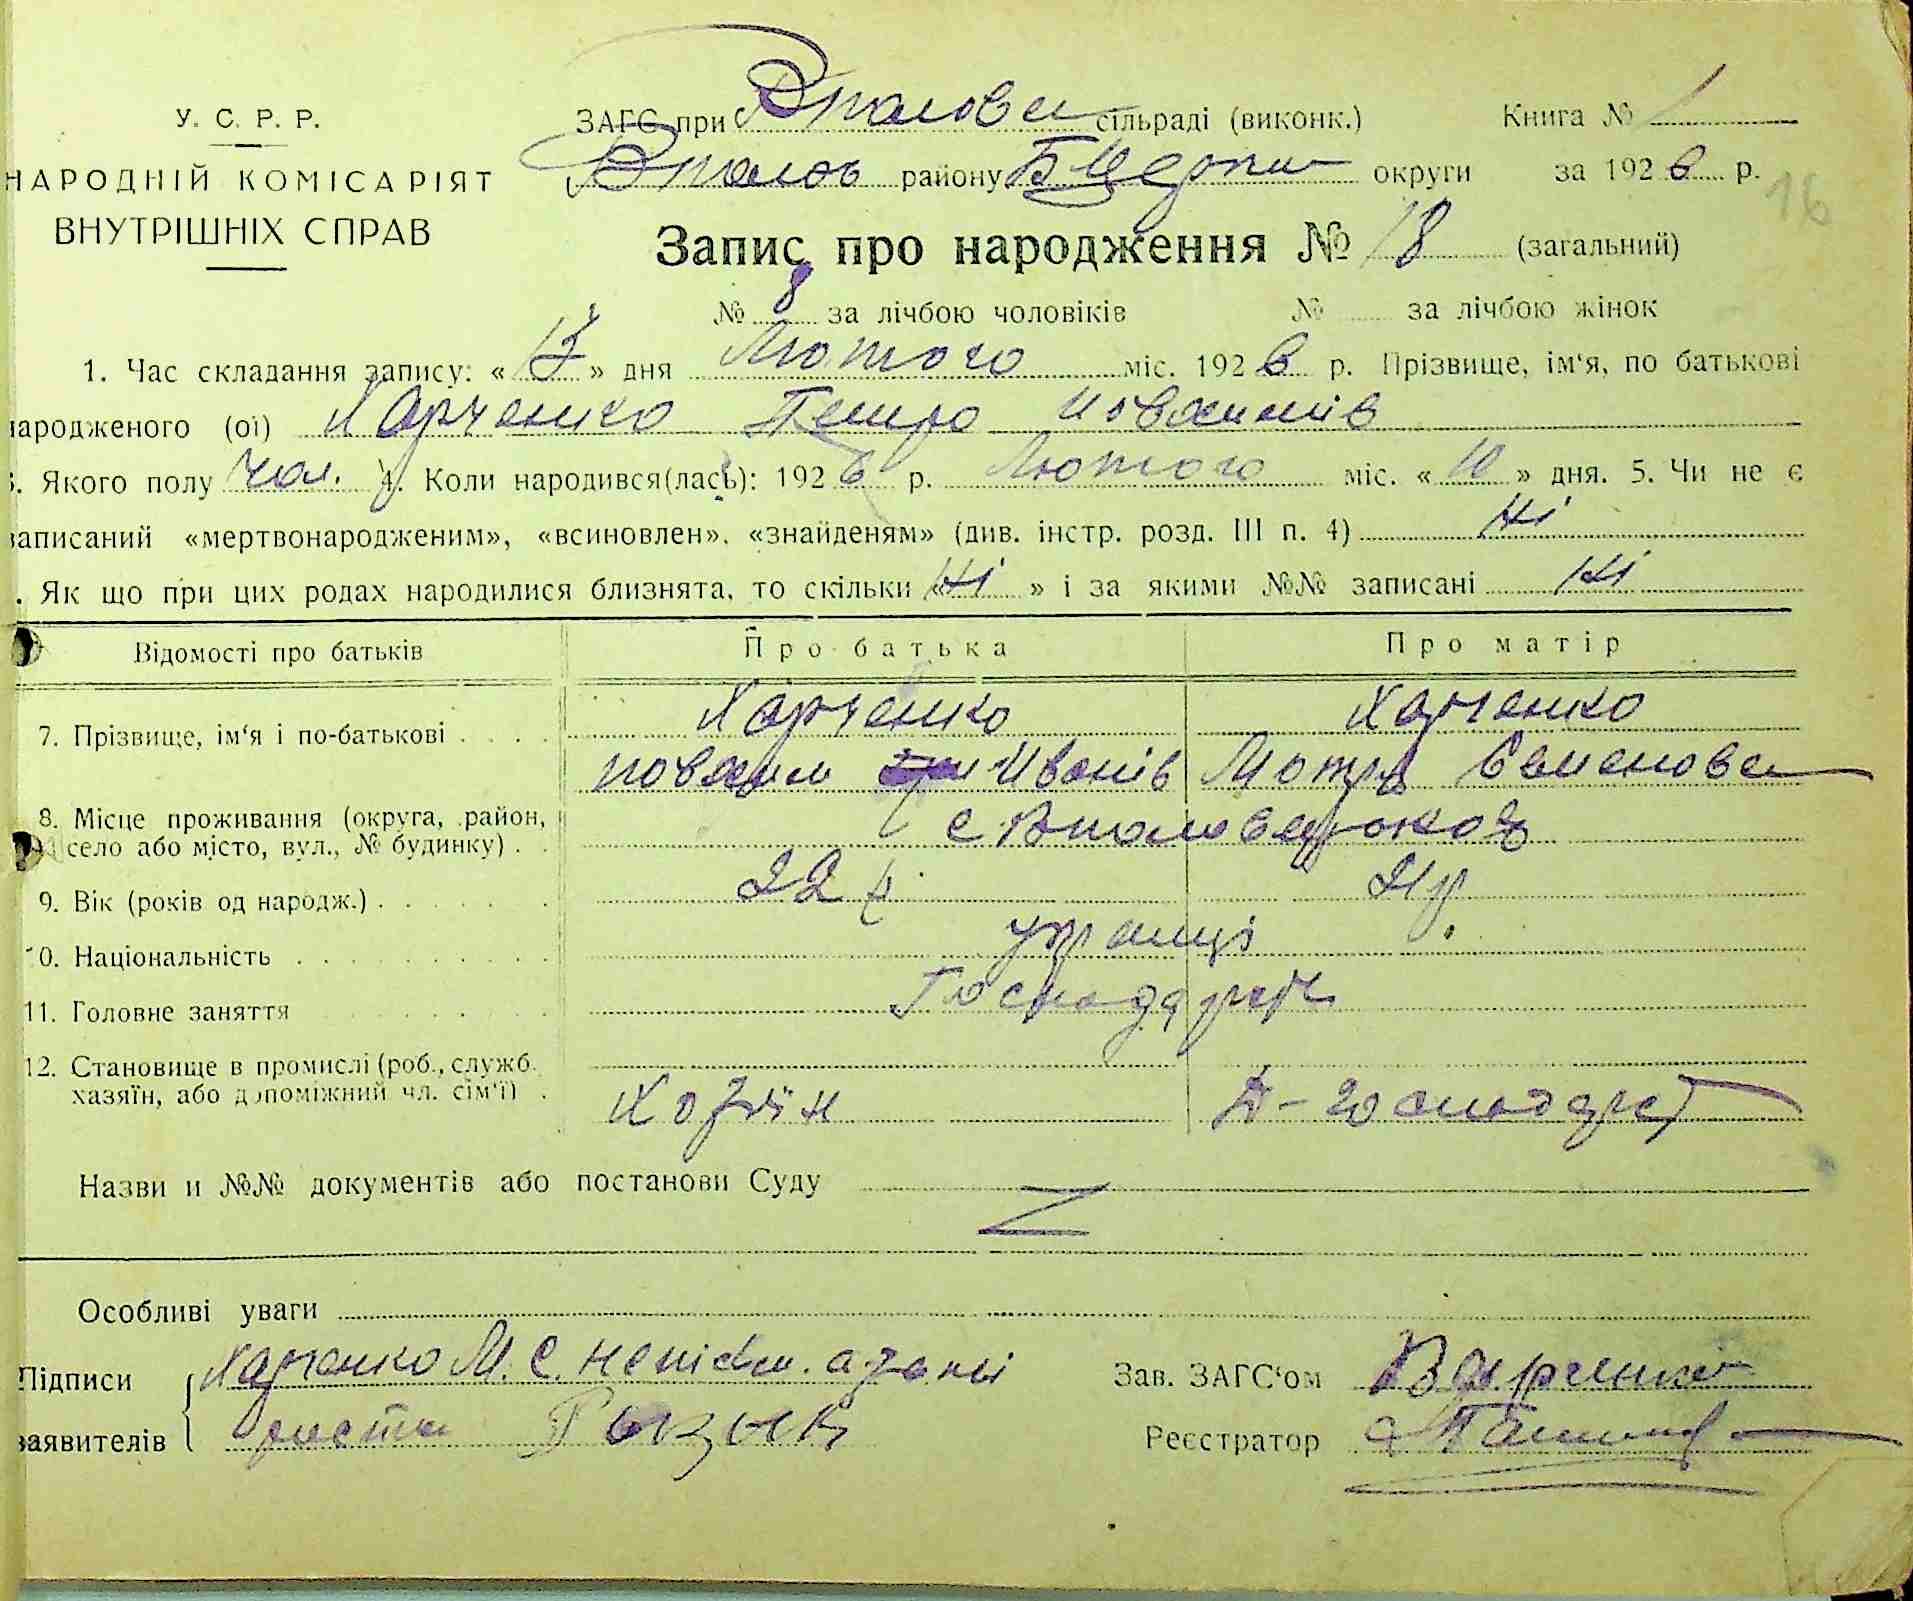 У. С. Р. Р.
НАРОДНІЙ КОМІСАРІЯТ
ВНУТРІШНІХ СПРАВ
ЗАГС при сільраді (виконк.) Книга № 1
району Б Церкви округи за 1926 р.
16
Запис про народження № 18 (загальний)
№ 8 за лічбою чоловіків № за лічбою жінок
1. Час складання запису: « 13 » дня Лютого міс. 1926 р. Прізвище, ім'я, по батькові
народженого (ої) Харченко Петро Иовхимів
Якого полу чол. 4. Коли народився(лась): 1926 р. Лютого міс. « 10 » дня. 5. Чи не є
записаний «мертвонародженим», «всиновлен», «знайденям» (див. інстр. розд. III п. 4) Ні
. Як що при цих родах народилися близнята, то скільки « Ні » і за якими №№ записані Ні
Відомості про батьків Про батька Про матір
7. Прізвище, ім'я і по-батькові Харченко Харченко
Иовхим Иванів Мотря Семенова
8. Місце проживання (округа, район, село або місто, вул., № будинку) с
9. Вік (років од народж.) 22 р. 21 р.
10. Національність українці
11. Головне заняття Господар
12. Становище в промислі (роб., служб. хазяїн, або допоміжний чл. сім'ї) Хозяїн Д-господар
Назви и №№ документів або постанови Суду
Особливі уваги
Підписи Харченко М. С. неписьм. а за неї
заявителів
Зав. ЗАГС'ом
Реєстратор